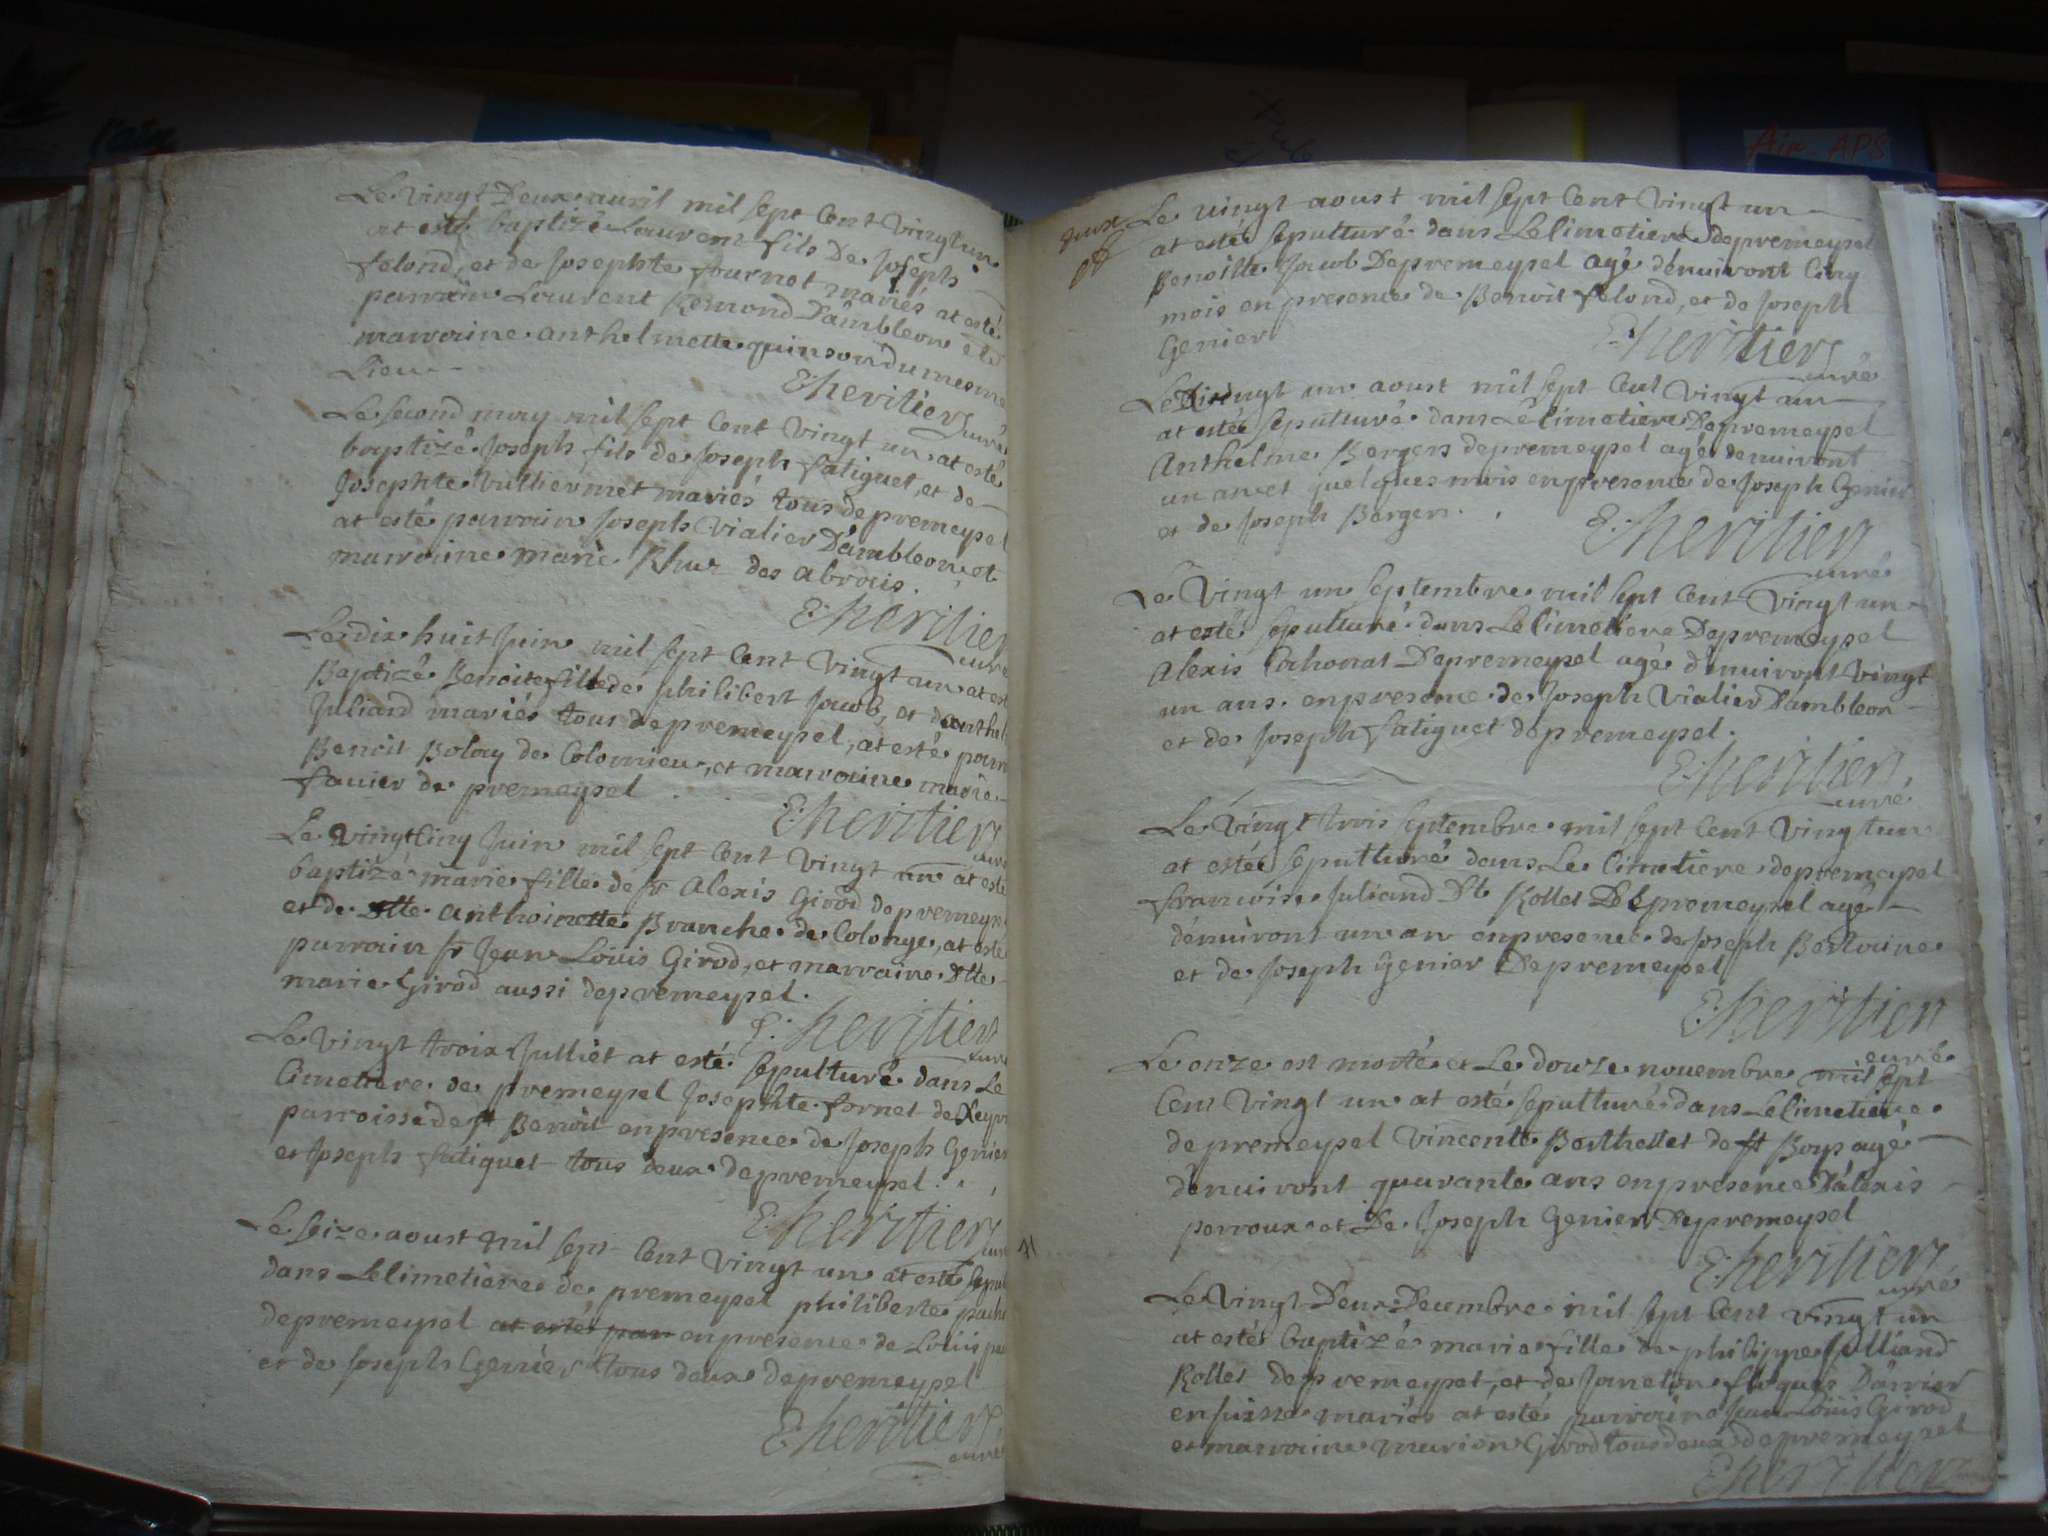 Le vingt Deux avril mil sept Cent Vingt un
at esté baptizé Laurent fils De Joseph
felond, et de Josephte fournot mariés at esté
parrain Laurent Remond D'ambleon et
marraine anthelmette quinson du mesme
Lieu
E: heritier curé
Le second may mil sept Cent Vingt un at esté
baptizé Joseph fils de Joseph fatiguet, et de
Josephte Vulliermet mariés tous de premeysel
at esté parrain Joseph Vialier D'ambleon, et
marraine marie des abrais.
E: heritier curé
Le dix huit Juin mil sept Cent Vingt un at est
Baptizé Benoite fille de philibert Jacob, et d'anthel
Juliand mariés tous de premeysel, at esté parr
Benoit Bolay de Colomieu, et marraine marie
favier de premeysel
E: heritier curé
Le vingt Cinq Juin mil sept Cent Vingt un at esté
baptizé marie fille de sr alexis Girod de premeyse
et de Dlle anthoinette Branche de Colonge, at esté
parrain sr Jean Louis Girod, et marraine Dlle
marie Girod aussi de premeysel.
E: heritier curé
Le vingt troix Julliet at esté sepulturé dans Le
Cimetiere de premeysel Josephte fornet de
parroisse de st Benoit en presence de Joseph Genier
et Joseph fatiguet tous deux de premeysel.
E: heritier curé
Le seize aoust mil sept Cent Vingt un at esté sepul
dans Le Cimetiere de premeysel philiberte
de premeysel at esté par en presence de Louis
et de Joseph Genier tous deux de premeysel
E: heritier curé
Le vingt aoust mil sept Cent Vingt un
at esté sepulturé dans Le Cimetiere de premeysel
Benoitte Jacob De premeysel agé denuiront Cinq
mois en presence de Benoit felond, et de Joseph
Genier
E: heritier curé
Le vingt un aoust mil sept Cent Vingt un
at esté sepulturé dans Le Cimetiere De premeysel
Anthelme Berger de premeysel agé denuiront
un an et quelques mois en presence de Joseph Genier
et de Joseph Berger.
E: heritier curé
Le Vingt un septembre mil sept Cent Vingt un
at esté sepulturé dans Le Cimetiere De premeysel
Alexis Cochonat De premeysel agé d'enuiront Vingt
un ans. en presence de Joseph Vialier D'ambleon
et de Joseph fatiguet de premeysel.
E: heritier curé
Le Vingt trois septembre mil sept Cent Vingt un
at esté sepulturé dans Le Cimetiere de premeysel
francoise Juliand Dt Rollet De premeysel agé
denuiront un an en presence de Joseph Berlraine
et de Joseph Genier De premeysel
E: heritier curé
Le onze est morte et Le douze nouembre mil sept
Cent Vingt un at esté sepulturé dans Le Cimetiere
de premeysel Vincente Berthellet de st Boys agé
denuiront quarante ans en presence D'alexis
perroux et De Joseph Genier De premeysel
E: heritier curé
Le Vingt Deux Decembre mil sept Cent Vingt un
at esté baptizé marie fille de philippe Julliand
Rollet de premeysel, et de Janeton
en suisse mariés at esté parrain Jean Louis Girod
et marraine marion Girod tous deux de premeysel
E: heritier